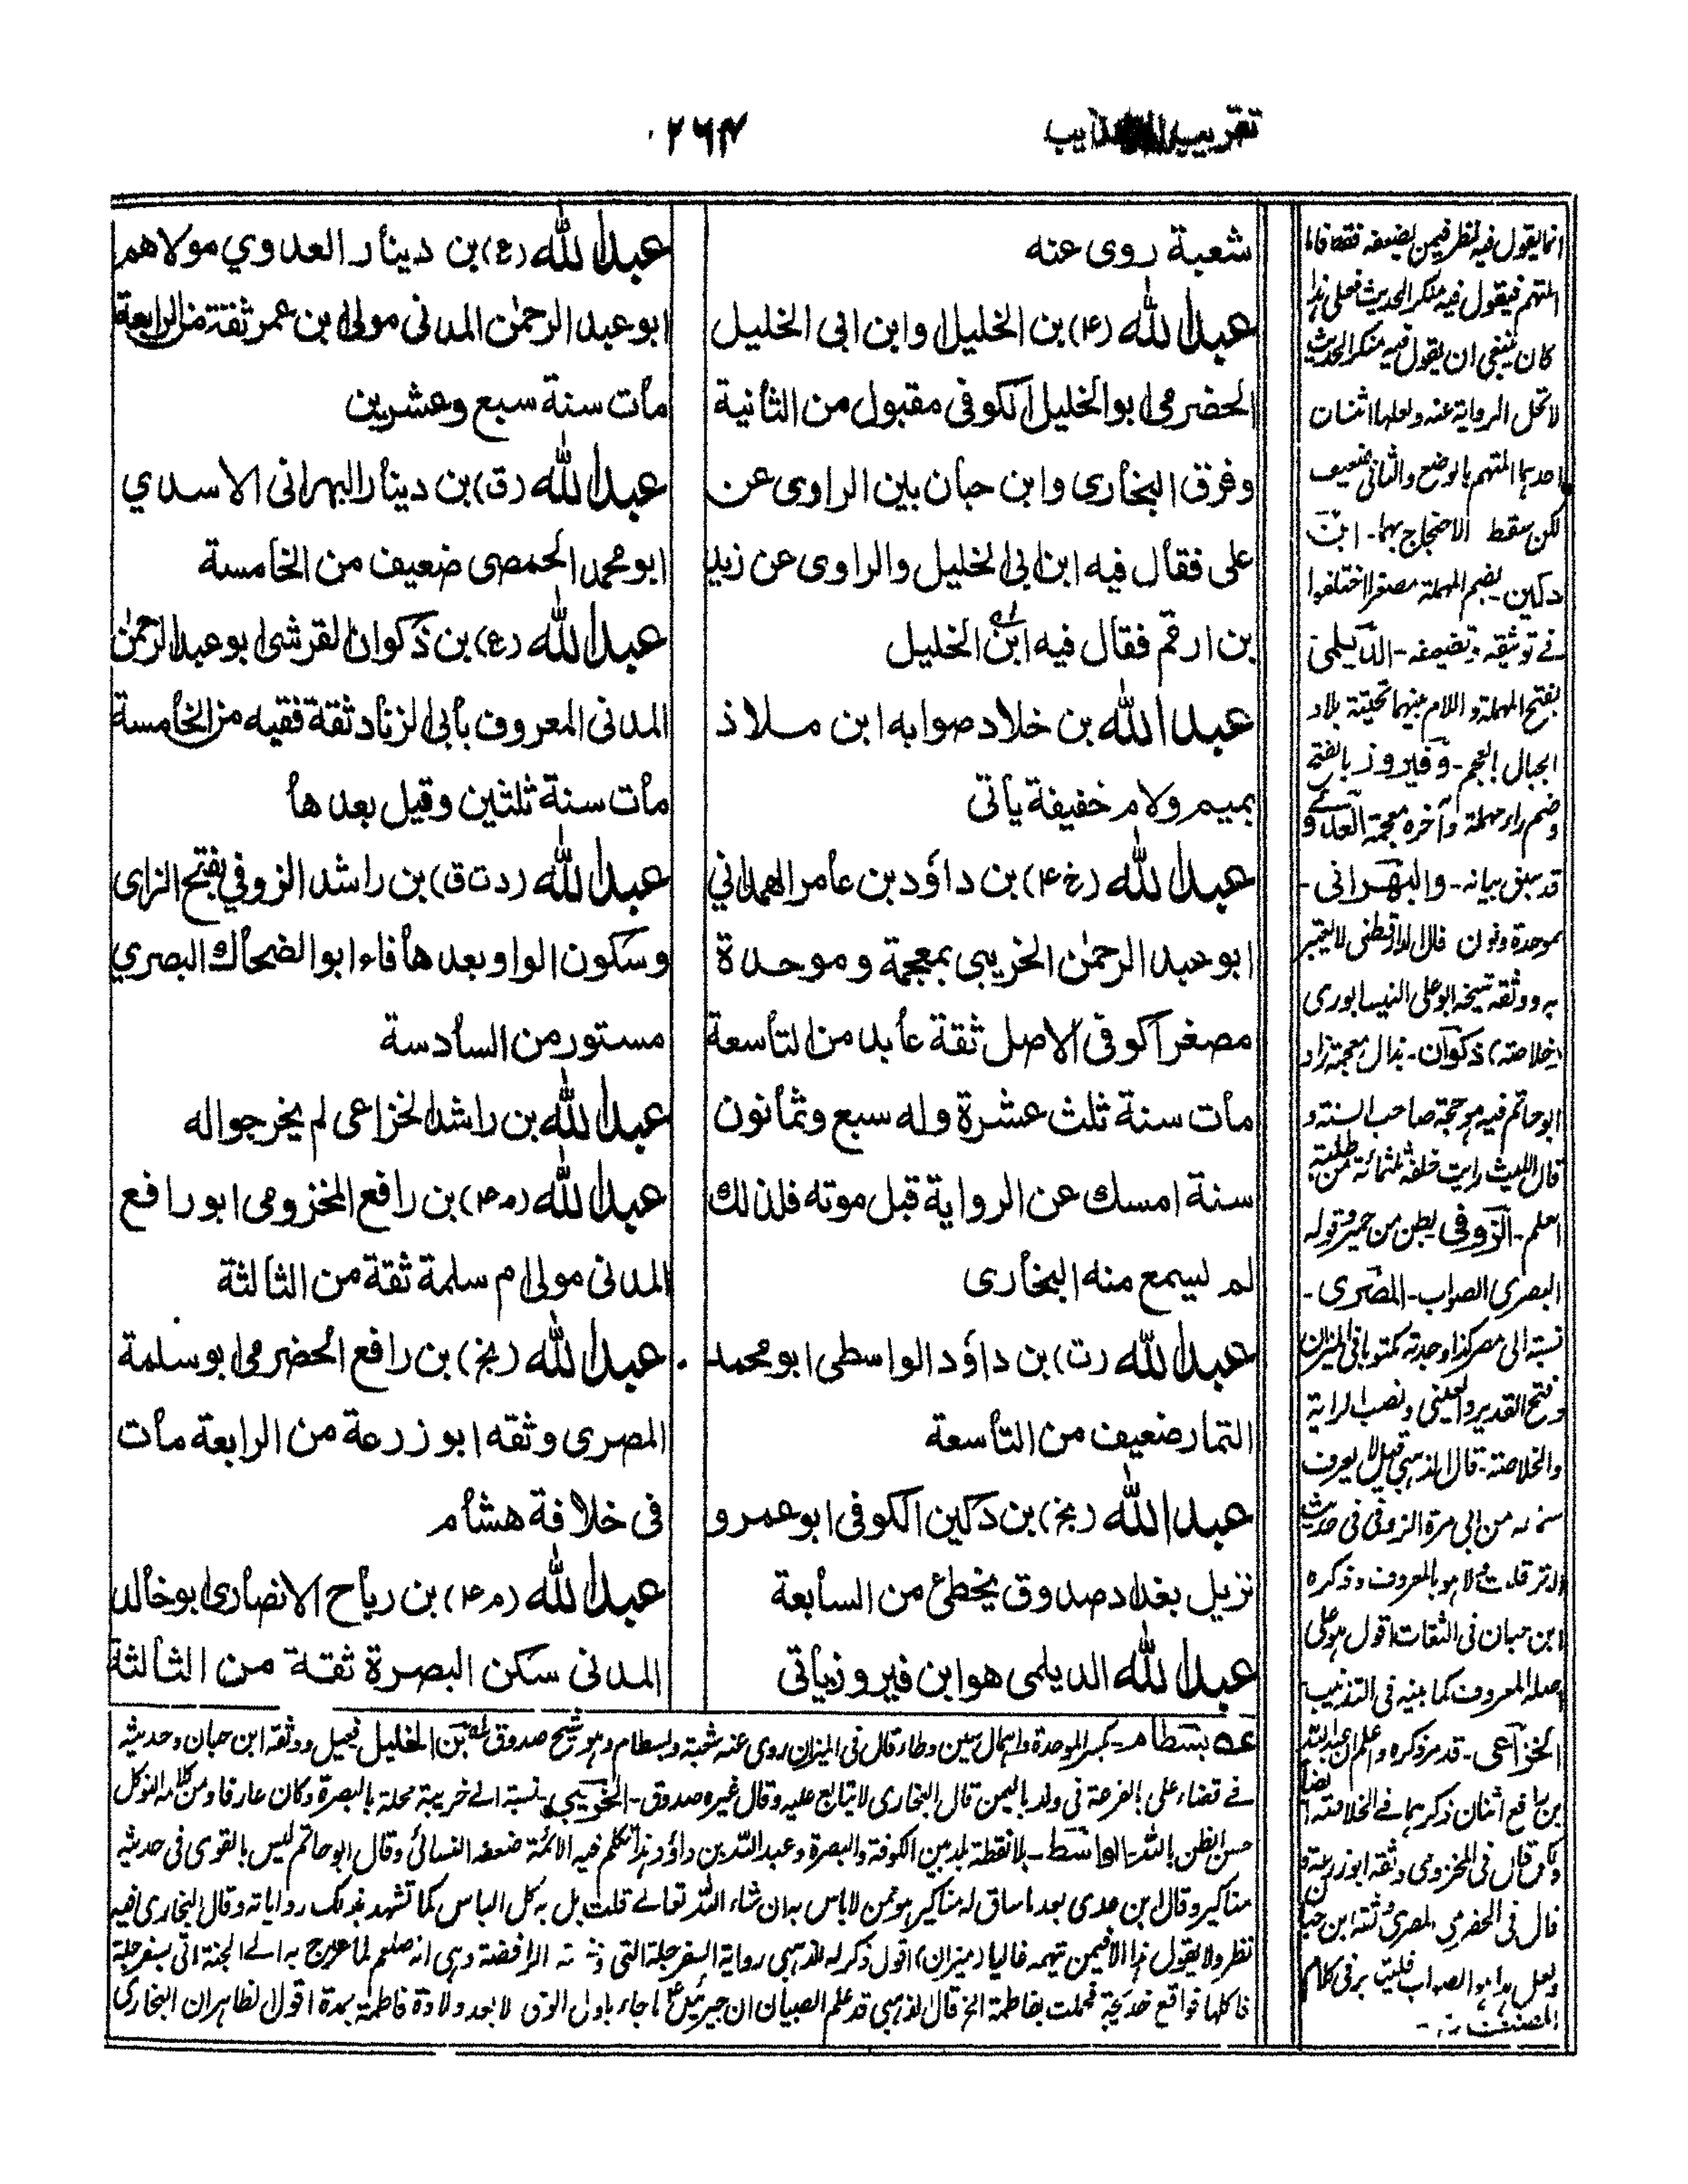 تقريب
٢٦٣
شعبة روى عنه
عبد الله (٤) بن الخليل او ابن ابى الخليل
الحضرمى ابو الخليل الكوفى مقبول من الثانية
وفرق البخارى وابن حبان بين الراوى عن
على فقال فيه ابن ابى الخليل والراوى عن زيد
بن ارقم فقال فيه ابن الخليل
عبد الله بن خلاد صوابه ابن ملاذ
بميم ولام خفيفة يأتى
عبد الله (خ ٤) بن داؤد بن عامر الهمداني
ابو عبد الرحمٰن الخريبى بمعجمة وموحدة
مصغرا كوفى الاصل ثقة عابد من التاسعة
مات سنة ثلث عشرة وله سبع وثمانون
سنة امسك عن الرواية قبل موته فلذلك
لم يسمع منه البخارى
عبد الله (ت) بن داؤد الواسطى ابو محمد
التمار ضعيف من التاسعة
عبد الله (بخ) بن دكين الكوفى ابو عمرو
نزيل بغداد صدوق يخطئ من السابعة
عبد الله الديلمى هو ابن فيروز يأتى
عبد الله (ع) بن دينار العدوي مولاهم
ابو عبد الرحمٰن المدنى مولى ابن عمر ثقة من الرابعة
مات سنة سبع وعشرين
عبد الله (ق) بن دينار البهرانى الاسدي
ابو محمد الحمصى ضعيف من الخامسة
عبد الله (ع) بن ذكوان القرشى ابو عبد الرحمٰن
المدنى المعروف بأبى الزناد ثقة فقيه من الخامسة
مات سنة ثلثين وقيل بعدها
عبد الله (د ت ق) بن راشد الزوفي بفتح الزاى
وسكون الواو بعدها فاء ابو الضحاك البصري
مستور من السادسة
عبد الله بن راشد الخزاعى لم يخرجوا له
عبد الله (م ٤) بن رافع المخزومى ابو رافع
المدنى مولى ام سلمة ثقة من الثالثة
عبد الله (بخ) بن رافع الحضرمى ابو سلمة
المصرى وثقه ابو زرعة من الرابعة مات
فى خلافة هشام
عبد الله (م ٤) بن رباح الانصارى ابو خالد
المدنى سكن البصرة ثقة من الثالثة
انما يقول فيه نظر فيمن يضعفه فقط فاما
المتهم فيقول فيه منكر الحديث فعلى هذا
كان ينبغى ان يقول فيه منكر الحديث
لا تحل الرواية عنه ولعلهما اثنان
احدهما المتهم بالوضع والثانى ضعيف
لكن سقط الاحتجاج بهما - ابن
دكين بضم المهملة مصغرا اختلفوا
فے توثيقه وتضعيفه - الديلمى
بفتح المهملة واللام بينهما تحتية بلاد
الجبال العجم - وفيروز بالفتح
وضم راء مهملة وآخره معجمة العدوے و
قد سبق بيانه - والبهرانى -
بموحدة ونون قال الدارقطنى لا يعتبر
به ووثقه شيخه ابو على النيسابورى
(خلاصة) ذكوان - بذال معجمة زاد
ابو حاتم فيه هو حجة صاحب السنة و
قال الليث رايت خلفه ثلثمائة من طلبة
العلم - الزوفى بطن من حمير وقوله
البصرى الصواب - المصرى -
نسبة الى مصر كذا وجدته مكتوبا فى الميزان
وفتح القدير والعينى ونصب الراية
والخلاصة - قال الذهبى قيل لا يعرف
سماعه من ابى مرة الزوفى فى حديث
الوتر قلت ولا هو بالمعروف وذكره
ابن حبان فى الثقات اقول هو على
اصله المعروف كما بينه فى التذنيب
الخزاعى - قد مر ذكره واعلم ان عبد الله
بن رافع اثنان ذكرهما فے الخلاصة ايضا
قال فى المخزومى وثقه ابو زرعة و
قال فى الحضرمى المصرى وثقه ابن حبان
ولعل هذا هو الصواب كلام
المصنف
عه بسطام - بكسر الموحدة واهمال سين وطاء وقال فى الميزان روى عنه شعبة وبسطام وهو شيخ صدوق بن الخليل ووثقه ابن حبان وحديثه
فے قضاء على بالقرعة فى ولد باليمن قال البخارى لا يتابع عليه وقال غيره صدوق - الخريبى نسبة الے خريبة محلة بالبصرة وكان عارفا ومن كلامه التوكل
حسن الظن بالله - الواسط - بلا نقطة بلد بين الكوفة والبصرة وعبد الله بن داؤد هذا تكلم فيه الائمة ضعفه النسائى وقال ابو حاتم ليس بالقوى فى حديثه
مناكير وقال ابن عدى بعد ما ساق له مناكير هو ممن لا باس به ان شاء الله تعالے قلت بل به كل الباس كما تشهد بذلك رواياته وقال البخارى فيه
نظر ولا يقول هذا الا فيمن يتهمه غالبا (ميزان) اقول ذكر له الذهبى رواية السفرجلة التى الرافضة وهى انه صلعم لما عرج به الے الجنة اتى بسفرجلة
فاكلها فواقع خديجة فحملت بفاطمة الخ قال الذهبى قد علم الصبيان ان جبرئيل ما جاء باول الوحى الا بعد ولادة فاطمة بمدة اقول الظاهر ان البخارى